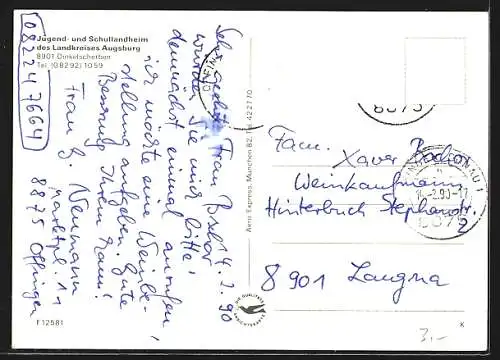 Jugend- und Schullandheim
des Landkreises Augsburg
8901 Dinkelscherben
Tel. (08292) 1059
082247664
14.2.90
Sehr geehrte Frau
würden Sie mich bitte
demnächst einmal anrufen
ich möchte eine Weinbe-
stellung aufgeben. Gute
Besserung Ihrem Mann!
Frau G. Neumann
Marktpl. 11
8875 Offingen
F 12581
Aero Express, München 82, Tel. 422770
DIE QUALITÄTS
ANSICHTSKARTE
Fam.
Xaver
Weinkaufmann
Hinterbuch Stephanstr.
2
8901 Langna
8875
.2.90-17
8875
K
3,-